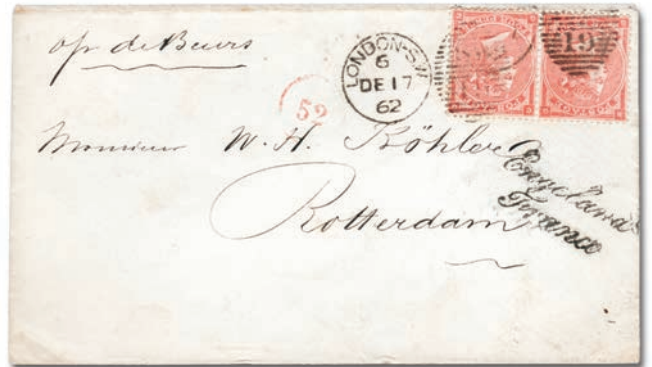 op de Beurs
LONDON-S.W
6
DE 17
62
52
19
FOURPENCE
Monsieur W. H. Köhler
Rotterdam
Engeland
Franco